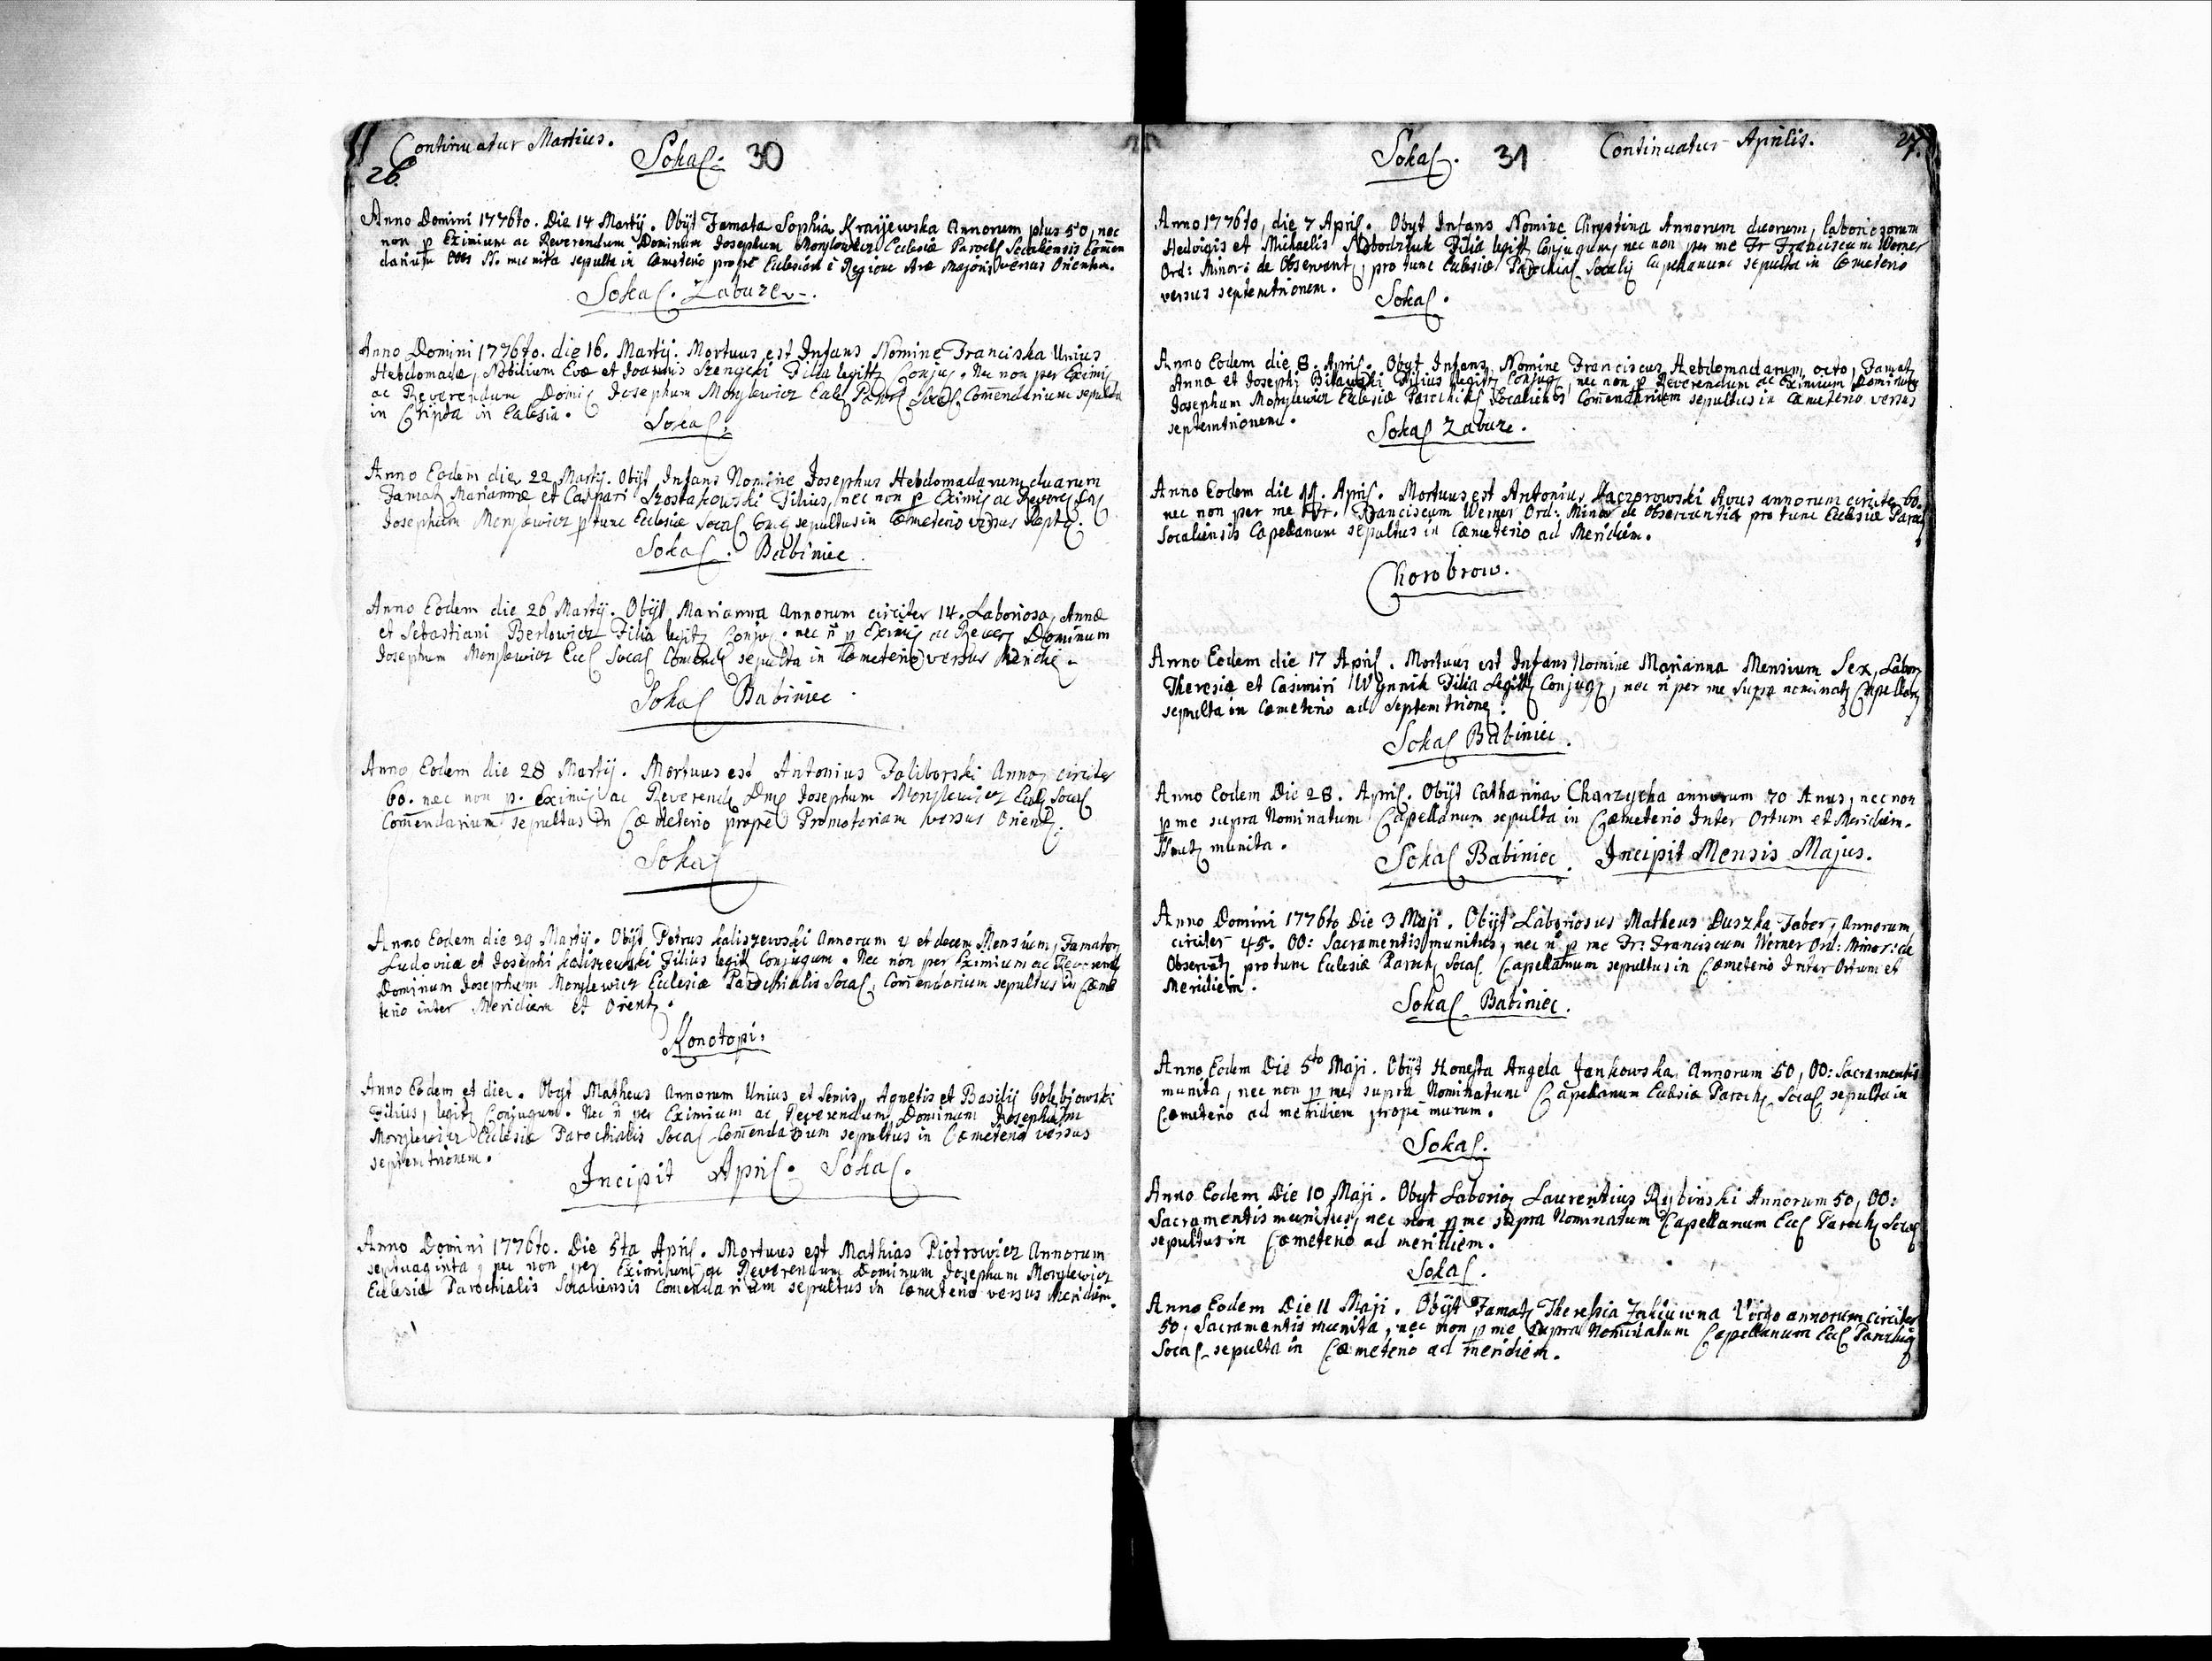 Continuatur Martius.
26.
Sokal: 30
Anno Domini 1776to. Die 14 Martij. Obijt Famata Sophia Kraijewska Annorum plus 50, nec
non p Eximium ac Reverendum Dominum Josephum Monylewicz Ecclesiæ Parochs Socalensis Com̄en
darium munita sepulta in Cæmeterio prope Ecclesiam è Regione Aræ Majoris versus Orientem.
Sokal. Zabuze.
Anno Domini 1776to. die 16. Martij. Mortuus est Infans Nomine Franciska Unius
Hebdomadæ, Nobilium Evæ et Joannis Filia legitt Conjug. Nec non per Eximi
ac Reverendum Domi Josephum Monylewicz Eccle Paroch Socal, Com̄endarium sepulta
in Cripta in Eclesia.
Sokal.
Anno Eodem die 22 Martij. Obijt Infans Nomine Josephus Hebdomadarum duarum
Famat Mariannæ et Caspari Szostakowski Filius, nec non p Eximi ac Rever
Josephum Monylewicz ptunc Ecclesiæ Socal sepultus in Cæmeterio versus Septe.
Sokal. Babiniec.
Anno Eodem die 26 Martij. Obijt Marianna Annorum circiter 14. Laboriosa, Annæ
et Sebastiani Berlowicz Filia legit Conjug. nec n̄ p Eximi ac Rever Dominum
Josephum Monylewicz Eccl Socal Comend sepulta in Cæmeterio versus Meridi
Sokal Babiniec
Anno Eodem die 28 Martij. Mortuus est Antonius Faliborski Anno circiter
60. nec non p. Eximi ac Reverend Dnm Josephum Monylewicz Eccl Socal
Com̄endarium sepultus in Cæmeterio prope Promotoriam versus Orient.
Sokal
Anno Eodem die 29 Martij. Obijt Petrus Kaliszewski Annorum 4 et decem Mensium, Famator
Ludovicæ et Josephi Kaliszewski Filius legit Conjugum. Nec non per Eximium ac Reverend
Dominum Josephum Monylewicz Eclesiæ Parochialis Socal, Com̄endarium sepultus in Cæme
terio inter Meridiem et Orient.
Konotopi.
Anno Eodem et die. Obijt Matheus Annorum Unius et Agnetis et Basilij Golebiowski
Filius, legit Conjugum. Nec n̄ per Eximium ac Reverendum Dominum Josephum
Monylewicz Eclesiæ Parochialis Socal Com̄endarium sepultus in Cæmeterio versus
septemtrionem.
Incipit April. Sokal.
Anno Domini 1776to. Die 5ta April. Mortuus est Mathias Piotrowicz Annorum
septuaginta, nec non per Eximium ac Reverendum Dominum Josephum Monylewicz
Eclesiæ Parochialis Socaliensis Comendarium sepultus in Cæmeterio versus Meridiem.
Sokal. 31
Continuatur Aprilis.
27.
Anno 1776to, die 7 April. Obyt Infans Nomine Chrystina Annorum duorum, laboriosorum
Hedvigis et Michaelis Filia legitt Conjugum, nec non per me Fr Franciscum Werner
Ord: Minor: de Observant, pro tunc Eclesiæ Parochial Socalij Capellanum sepulta in Cæmeterio
versus septemtrionem.
Sokal.
Anno Eodem die 8. April. Obyt Infans Nomine Franciscus Hebdomadarum octo, Famat
Annæ et Josephi Filius legitt Conjug, nec non p Reverendum ac Eximium Dominum
Josephum Monylewicz Eclesiæ Com̄endarium sepultus in Cæmeterio versus
septemtrionem.
Sokal Zabuze.
Anno Eodem die 11. April. Mortuus est Antonius Kaczorowski Avus annorum circiter 60.
nec non per me Fr. Franciscum Werner Ord: Minor de Observantia pro tunc Eclesiæ Paroch
Socaliensis Capellanum sepultus in Cæmeterio ad Meridiem.
Chorobrow.
Anno Eodem die 17 April. Mortuus est Infans Nomine Marianna Mensium Sex, Labor
Theresiæ et Casimiri Wynnik Filia Legitt Conjug, nec n̄ per me supra nominat Capellan
sepulta in Cæmeterio ad Septemtrione.
Sokal Babiniec.
Anno Eodem Die 28. April. Obijt Catharina Charzycka annorum 70 Anus, nec non
p me supra Nominatum Capellanum sepulta in Cæmeterio Inter Ortum et Meridiem.
munita.
Sokal Babiniec. Incipit Mensis Majus.
Anno Domini 1776to Die 3 Maji. Obijt Laboriosus Matheus Duszka Faber, Annorum
circiter 45. OO: Sacramentis munitus, nec n̄ p me Fr: Franciscum Werner Ord: Minor: de
Observat pro tunc Eclesiæ Paroch Socal Capellanum sepultus in Cæmeterio Inter Ortum et
Meridiem.
Sokal Babiniec.
Anno Eodem Die 5to Maji. Obijt Honesta Angela Jankowska Annorum 50, OO: Sacramentis
munita, nec non p me supra Nominatum Capellanum Eclesiæ Paroch Socal sepulta in
Cæmeterio ad meridiem prope murum.
Sokal.
Anno Eodem Die 10 Maji. Obyt Laborio Laurentius Rybinski Annorum 50, OO:
Sacramentis munitus, nec non p me supra Nominatum Capellanum Eccl Paroch Socal
sepultus in Cæmeterio ad meridiem.
Sokal.
Anno Eodem Die 11 Maji. Obijt Famat Theresia Virgo annorum circiter
50, Sacramentis munita, nec non p me supra Nominatum Capellanum Eccl Parochia
Socal sepulta in Cæmeterio ad meridiem.